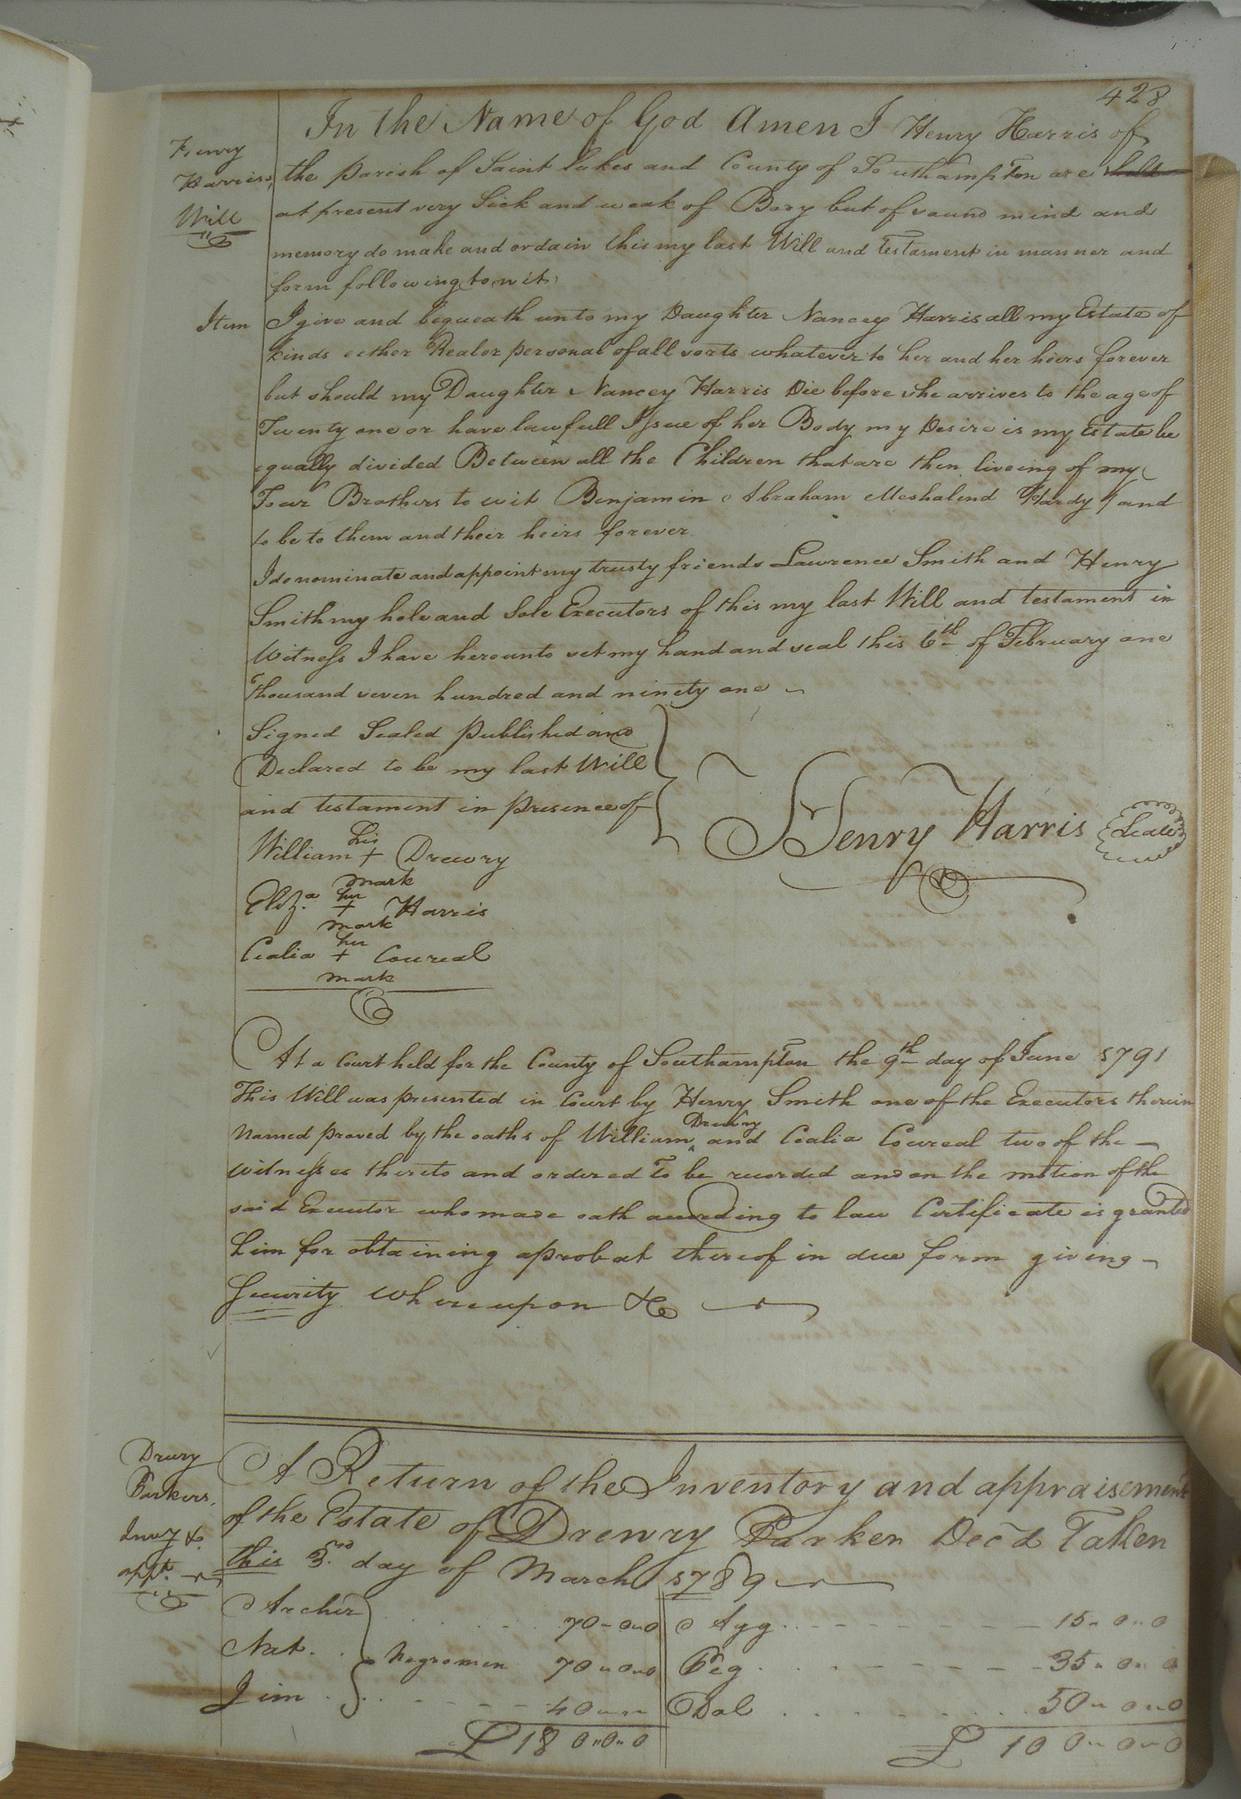 428
In the Name of God Amen I Henry Harris of
Henry
Harris's
Will
the parish of Saint Lukes and County of Southampton are
at present very Sick and weak of Body but of sound mind and
memory do make and ordain this my last Will and testament in manner and
form following to wit,
Item I give and bequeath unto my Daughter Nancey Harris all my Estate of
kinds either Real or personal of all sorts whatever to her and her heirs forever
but should my Daughter Nancey Harris Die before she arrives to the age of
Twenty one or have lawfull Issue of her Body my Desire is my Estate be
equally divided Between all the Children that are then liveing of my
Four Brothers to wit Benjamin Abraham Hardy and
to be to them and their heirs forever
I do nominate and appoint my trusty friends Lawrence Smith and Henry
Smith my hole and Sole Executors of this my last Will and testament in
Witness I have hereunto set my hand and seal this 6th of February one
thousand seven hundred and ninety one
Signed Sealed published and
Declared to be my last Will
and testament in presence of
Henry Harris Seal
William his + mark Drewry
Eliza. her + mark Harris
Cealia her + mark Coureal
At a Court held for the County of Southampton the 9th day of June 1791
This Will was presented in Court by Henry Smith one of the Executors therein
named proved by the oaths of William ^Drewry and Cealia Coureal two of the
witnesses thereto and ordered to be recorded and on the motion of the
said Executor who made oath according to law Certificate is granted
him for obtaining a probat thereof in due form giving
Security whereupon &c
Drury
Parkers,
Invy &
appt.
A Return of the Inventory and appraisement
of the Estate of Drewry Parker Dec'd Taken
this 3rd day of March 1789
Archer 70-0-0 Agg 15-0-0
Nat. Negromen 70-0-0 Peg 35-0-0
Jim 40-- Dol 50-0-0
£180-0-0 £100-0-0